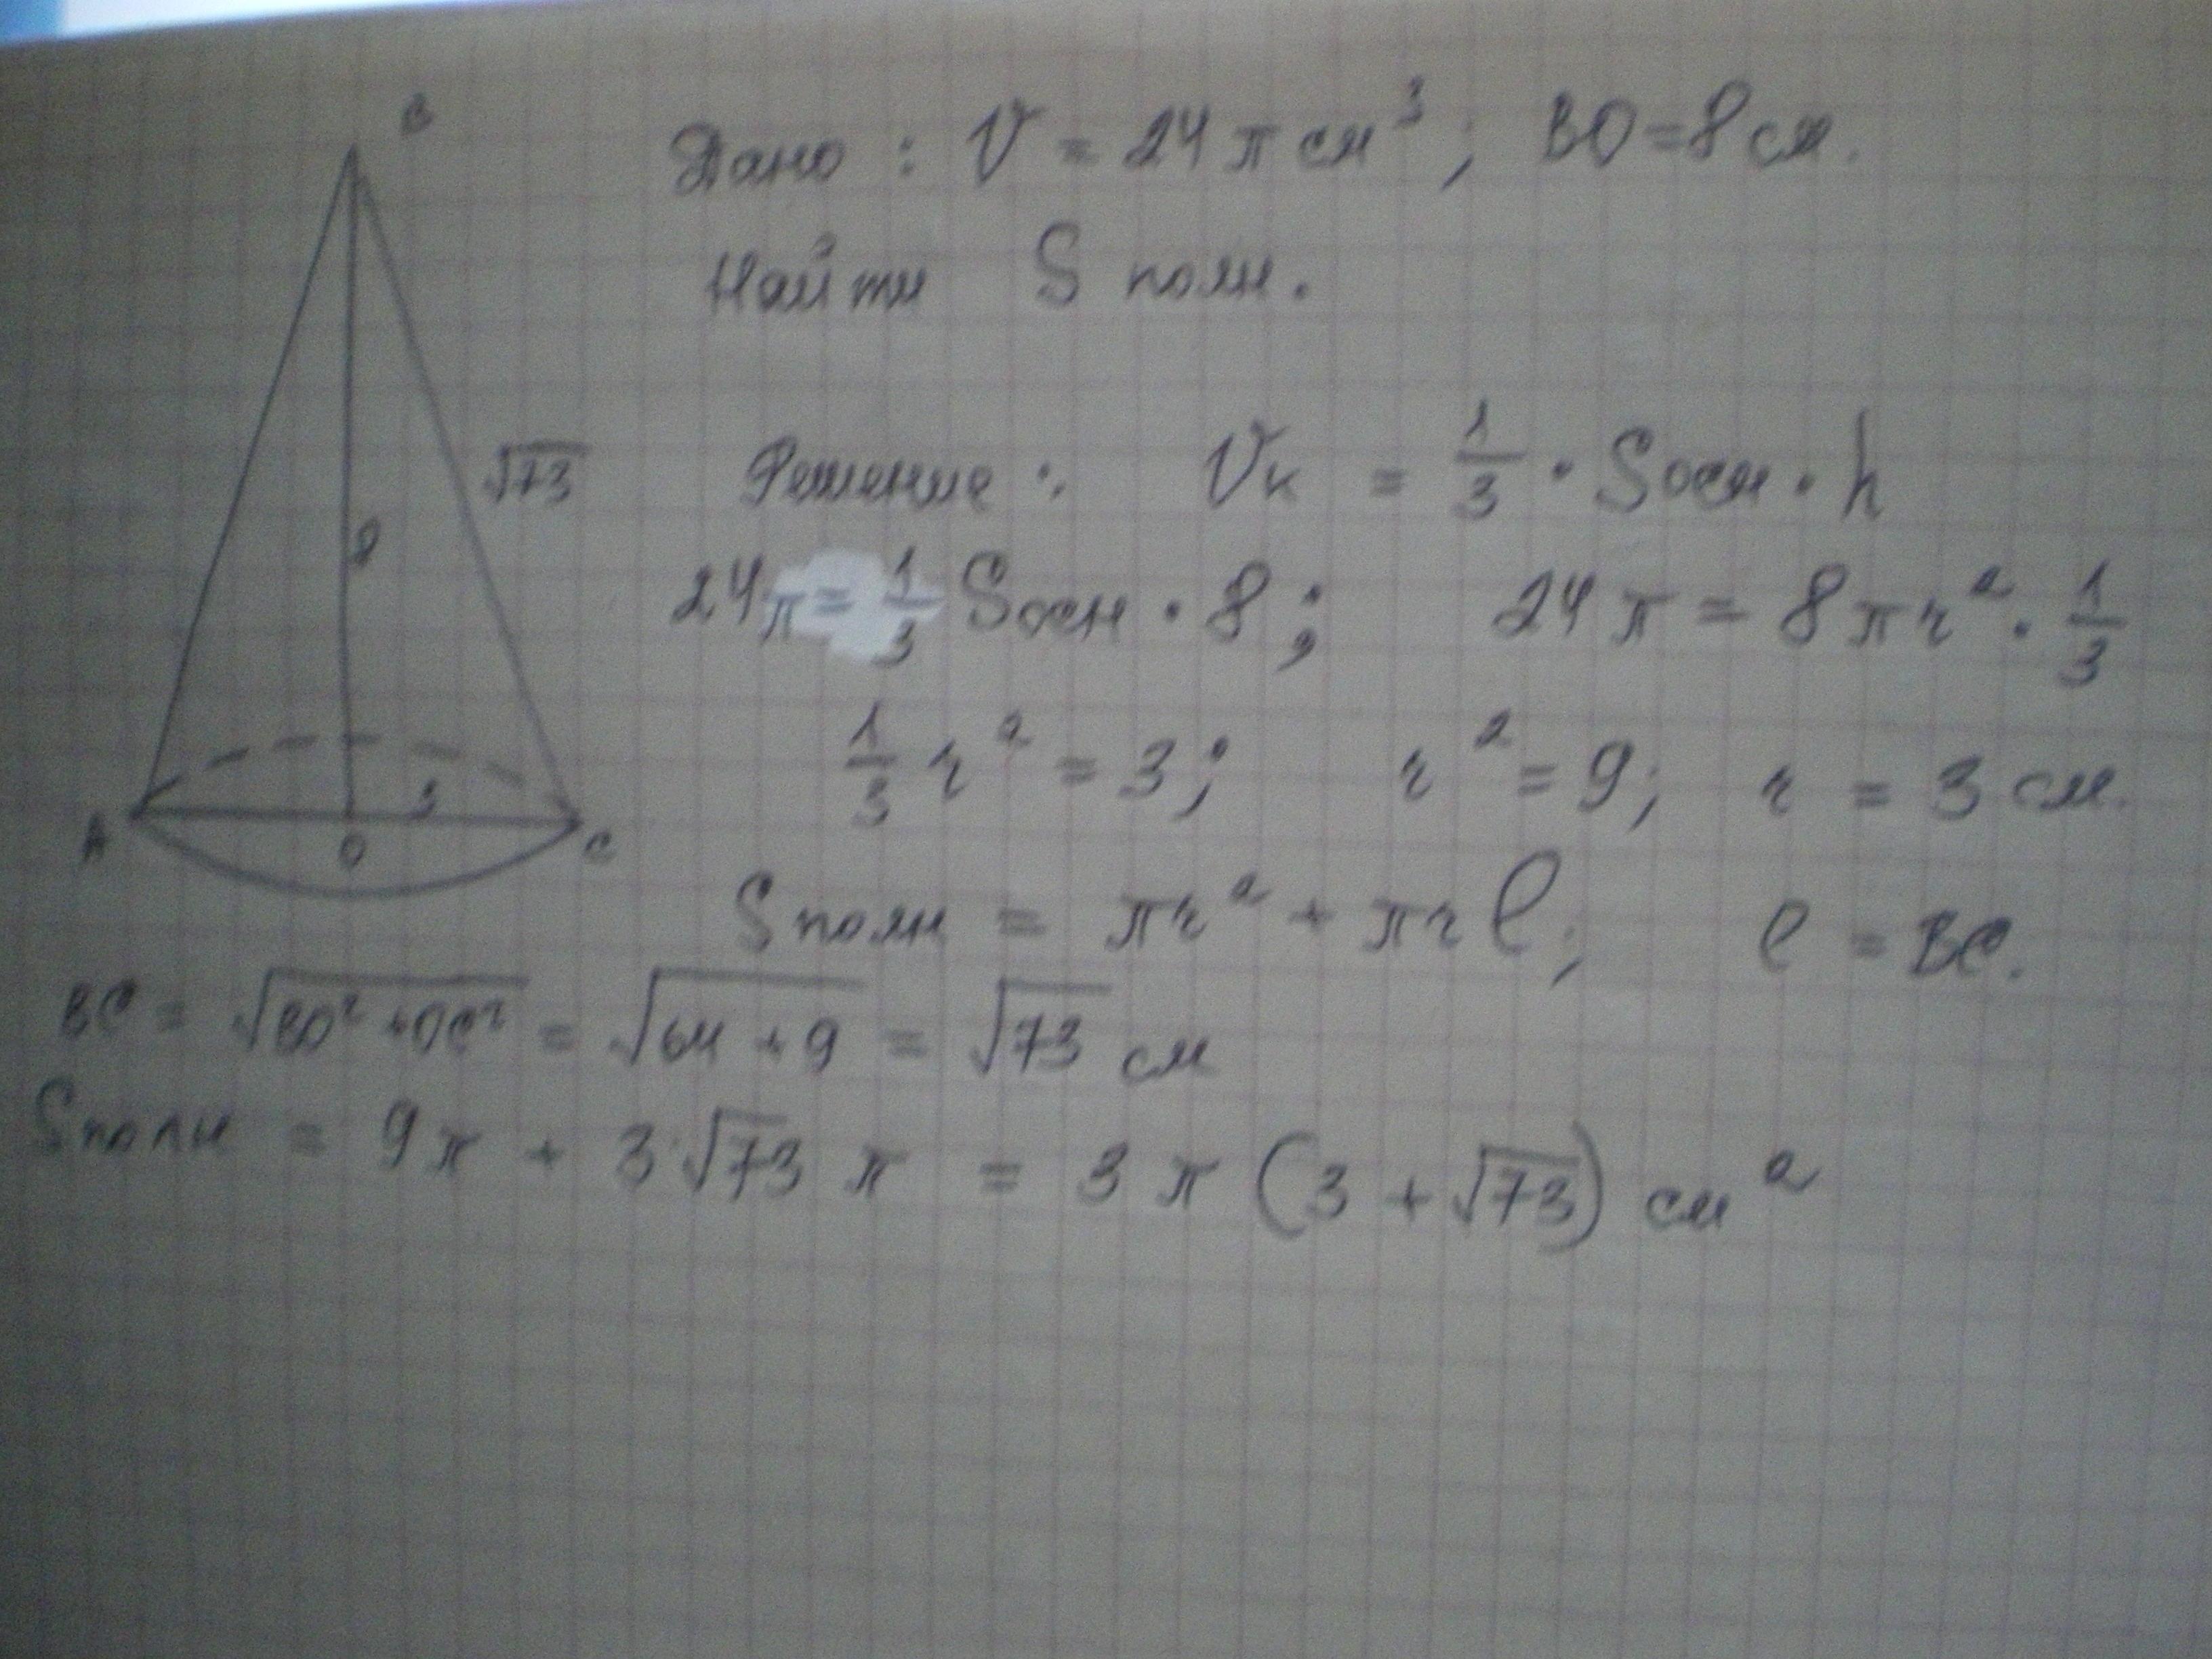 B
Дано : V = 24 π см³ ; BO = 8 см.
Найти S полн.
√73
8
Решение : Vк = 1/3 · Sосн · h
24π = 1/3 Sосн · 8 ; 24 π = 8 π r² · 1/3
1/3 r² = 3 ; r² = 9 ; r = 3 см.
A O 3 C
Sполн = πr² + πrl ; l = BC.
BC = √BO² + OC² = √64 + 9 = √73 см
Sполн = 9π + 3√73 π = 3 π (3 + √73) см²